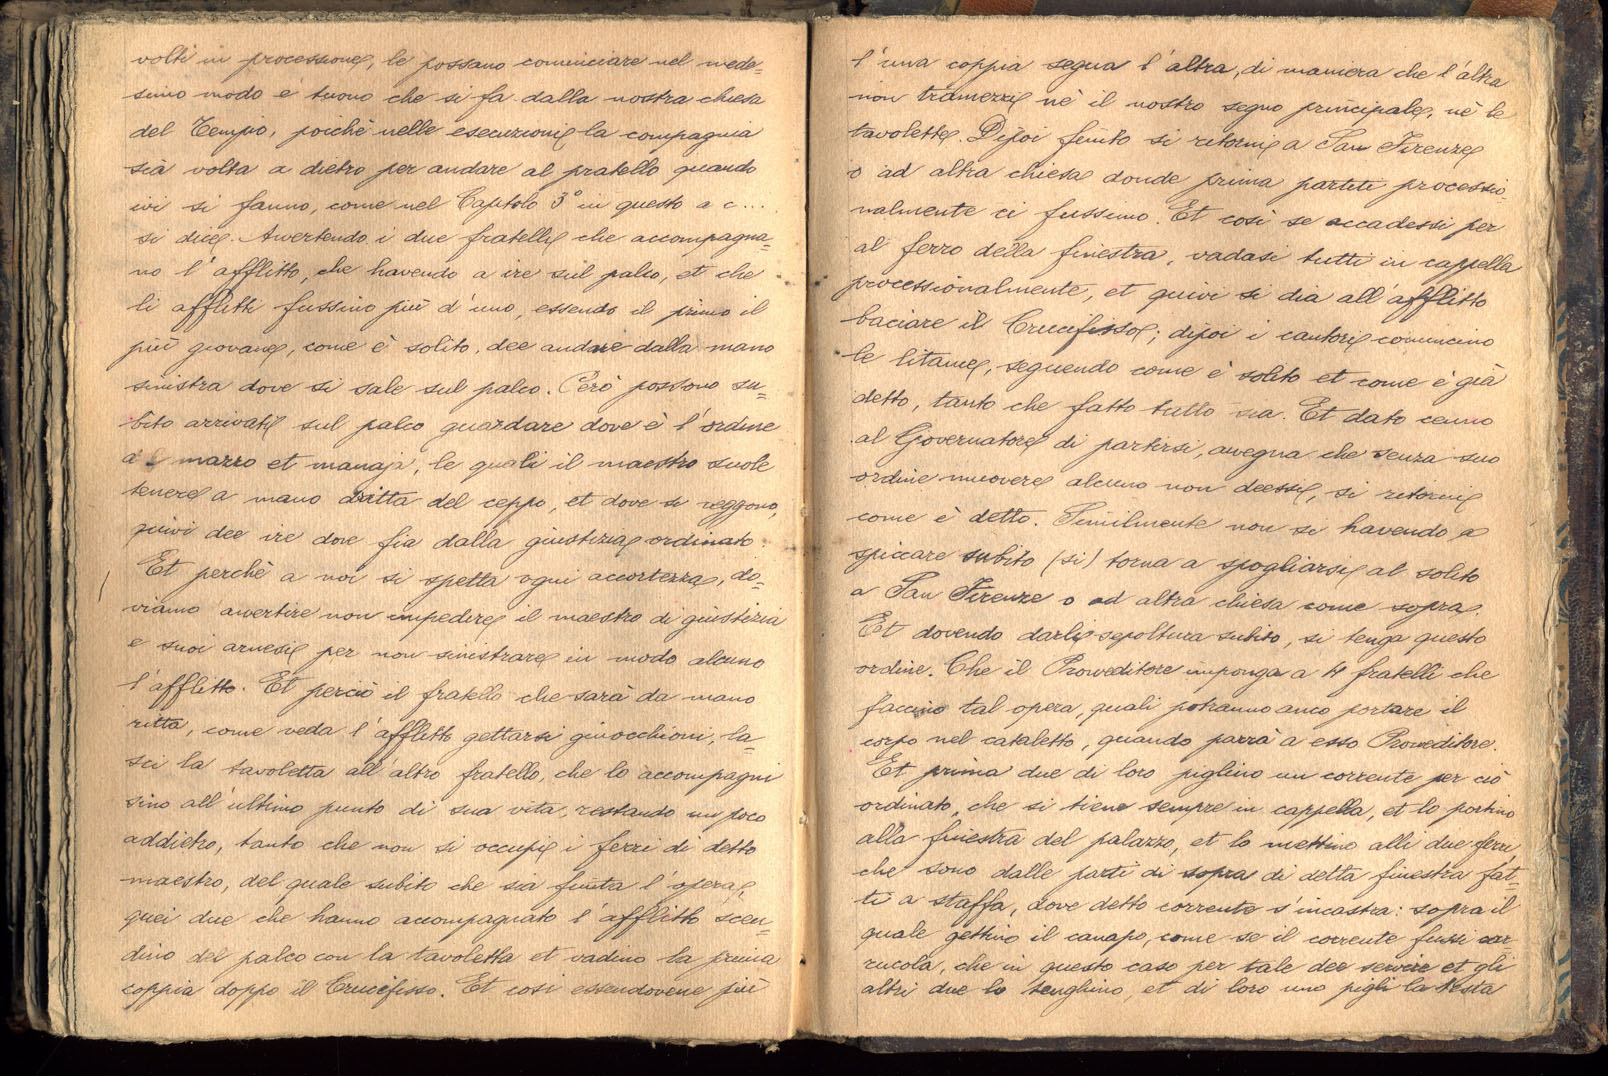 volti in processione, le possano cominciare nel mede=
simo modo e tuono che si fa dalla nostra chiesa
del Tempio, poichè nelle esecuzioni la compagnia
sia volta a dietro per andare al pratello quando
ivi si fanno, come nel Capitolo 3° in questo a c...
si dice. Avvertendo i due fratelli che accompagna=
no l'afflitto, che havendo a ire sul palco, et che
li afflitti fussino più d'uno, essendo il primo il
più giovane, come è solito, dee andare dalla mano
sinistra dove si sale sul palco. Però possono su=
bito arrivati sul palco guardare dove è l'ordine
del mazzo et manaja, le quali il maestro suole
tenere a mano dritta del ceppo, et dove si reggono,
quivi dee ire dove fia dalla giustizia ordinato.
Et perchè a noi si spetta ogni accortezza, do=
viamo avvertire non impedire il maestro di giustizia
e suoi arnesi per non sinistrare in modo alcuno
l'afflitto. Et perciò il fratello che sarà da mano
ritta, come veda l'afflitto gettarsi ginocchioni, la=
sci la tavoletta all'altro fratello, che lo accompagni
sino all'ultimo punto di sua vita, restando un poco
addietro, tanto che non si occupi i ferri di detto
maestro, del quale subito che sia finita l'opera,
quei due che hanno accompagnato l'afflitto scen=
dino del palco con la tavoletta et vadino la prima
coppia doppo il Crucifisso. Et così essendovene più
l'una coppia segua l'altra, di maniera che l'altra
non tramezzi nè il nostro segno principale, nè le
tavolette. Dipoi finito si ritorni a San Firenze
o ad altra chiesa donde prima partiti processio=
nalmente ci fussimo. Et così se accadessi per
al ferro della finestra, vadasi tutti in cappella
processionalmente, et quivi si dia all'afflitto
baciare il Crucifisso; dipoi i cantori comincino
le litanie, seguendo come è solito et come è già
detto, tanto che fatto tutto sia. Et dato cenno
al Governatore di partirsi, avegna che senza suo
ordine muovere alcuno non deesse, si ritorni
come è detto. Similmente non si havendo a
spiccare subito (si) torna a spogliarsi al solito
a San Firenze o ad altra chiesa come sopra.
Et dovendo darli sepoltura subito, si tenga questo
ordine. Che il Proveditore imponga a 4 fratelli che
faccino tal opera, quali potranno anco portare il
corpo nel cataletto, quando parrà a esso Proveditore.
Et prima due di loro piglino un corrente per ciò
ordinato, che si tiene sempre in cappella, et lo portino
alla finestra del palazzo, et lo mettino alli due ferri
che sono dalle parti di sopra di detta finestra fat=
ti a staffa, dove detto corrente s'incastra: sopra il
quale gettino il canapo, come se il corrente fussi car=
rucola, che in questo caso per tale dee servire et gli
altri due lo tenghino, et di loro uno pigli la testa